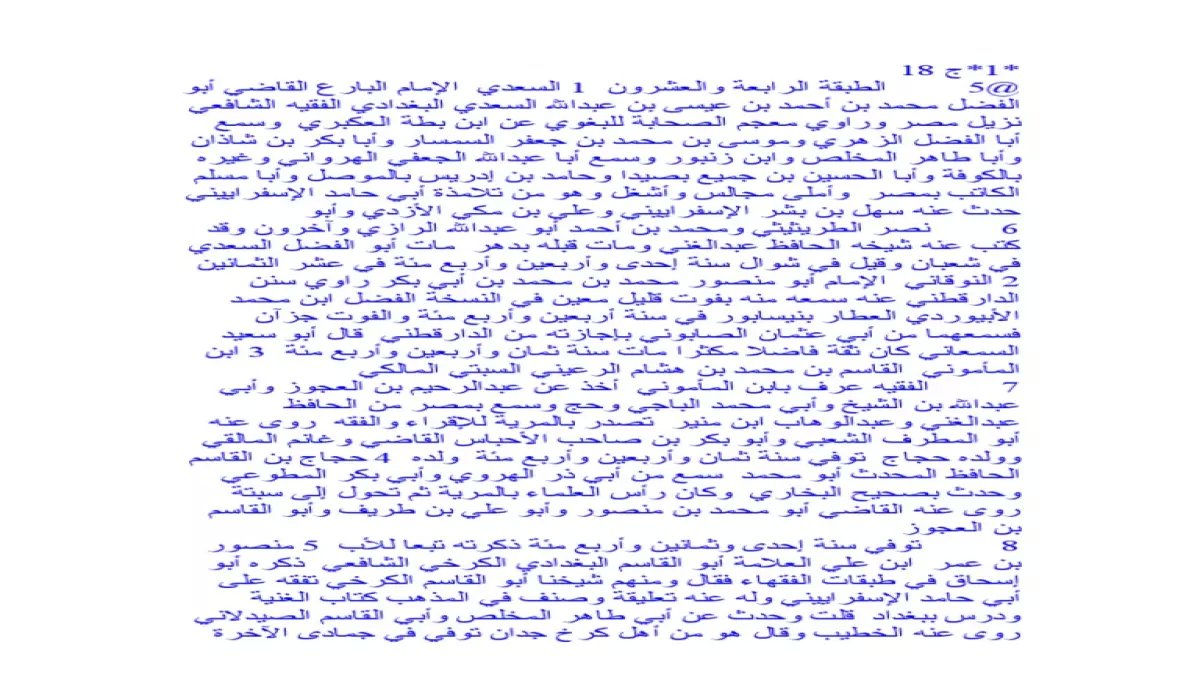 *1*ج 18
@5 الطبقة الرابعة والعشرون 1 السعدي الإمام البارع القاضي أبو
الفضل محمد بن أحمد بن عيسى بن عبدالله السعدي البغدادي الفقيه الشافعي
نزيل مصر وراوي معجم الصحابة للبغوي عن ابن بطة العكبري وسمع
أبا الفضل الزهري وموسى بن محمد بن جعفر السمسار وأبا بكر بن شاذان
وأبا طاهر المخلص وابن زنبور وسمع أبا عبدالله الجعفي الهرواني وغيره
بالكوفة وأبا الحسين بن جميع بصيدا وحامد بن إدريس بالموصل وأبا مسلم
الكاتب بمصر وأملى مجالس وأشغل وهو من تلامذة أبي حامد الإسفراييني
حدث عنه سهل بن بشر الإسفراييني وعلي بن مكي الأزدي وأبو
6 نصر الطريثيثي ومحمد بن أحمد أبو عبدالله الرازي وآخرون وقد
كتب عنه شيخه الحافظ عبدالغني ومات قبله بدهر مات أبو الفضل السعدي
في شعبان وقيل في شوال سنة إحدى وأربعين وأربع مئة في عشر الثمانين
2 النوقاني الإمام أبو منصور محمد بن محمد بن أبي بكر راوي سنن
الدارقطني عنه سمعه منه بفوت قليل معين في النسخة الفضل ابن محمد
الأبيوردي العطار بنيسابور في سنة أربعين وأربع مئة والفوت جزآن
فسمعهما من أبي عثمان الصابوني بإجازته من الدارقطني قال أبو سعيد
السمعاني كان ثقة فاضلا مكثرا مات سنة ثمان وأربعين وأربع مئة 3 ابن
المأموني القاسم بن محمد بن هشام الرعيني السبتي المالكي
7 الفقيه عرف بابن المأموني أخذ عن عبدالرحيم بن العجوز وأبي
عبدالله بن الشيخ وأبي محمد الباجي وحج وسمع بمصر من الحافظ
عبدالغني وعبدالوهاب ابن منير تصدر بالمرية للإقراء والفقه روى عنه
أبو المطرف الشعبي وأبو بكر بن صاحب الأحباس القاضي وغانم المالقي
وولده حجاج توفي سنة ثمان وأربعين وأربع مئة ولده 4 حجاج بن القاسم
الحافظ المحدث أبو محمد سمع من أبي ذر الهروي وأبي بكر المطوعي
وحدث بصحيح البخاري وكان رأس العلماء بالمرية ثم تحول إلى سبتة
روى عنه القاضي أبو محمد بن منصور وأبو علي بن طريف وأبو القاسم
بن العجوز
8 توفي سنة إحدى وثمانين وأربع مئة ذكرته تبعا للأب 5 منصور
بن عمر ابن علي العلامة أبو القاسم البغدادي الكرخي الشافعي ذكره أبو
إسحاق في طبقات الفقهاء فقال ومنهم شيخنا أبو القاسم الكرخي تفقه على
أبي حامد الإسفراييني وله عنه تعليقة وصنف في المذهب كتاب الغنية
ودرس ببغداد قلت وحدث عن أبي طاهر المخلص وأبي القاسم الصيدلاني
روى عنه الخطيب وقال هو من أهل كرخ جدان توفي في جمادى الآخرة